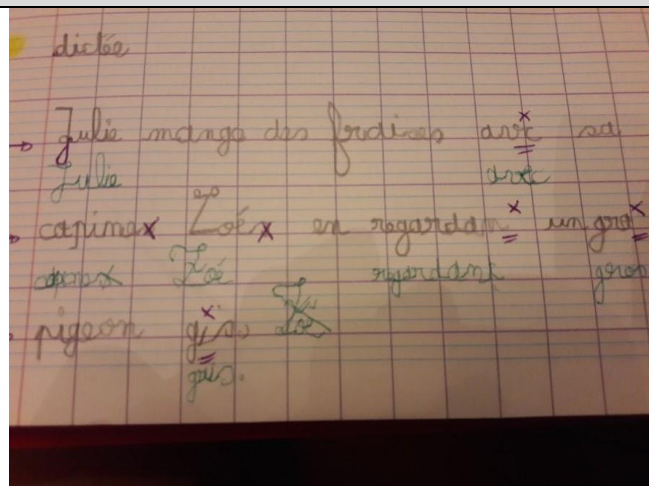 dictée
Julie mange des fraises avec sa
Julie avec
copine Zoé en regardan un gro
copine Zoé regardant gros
pigeon gis. Zoé
gris.